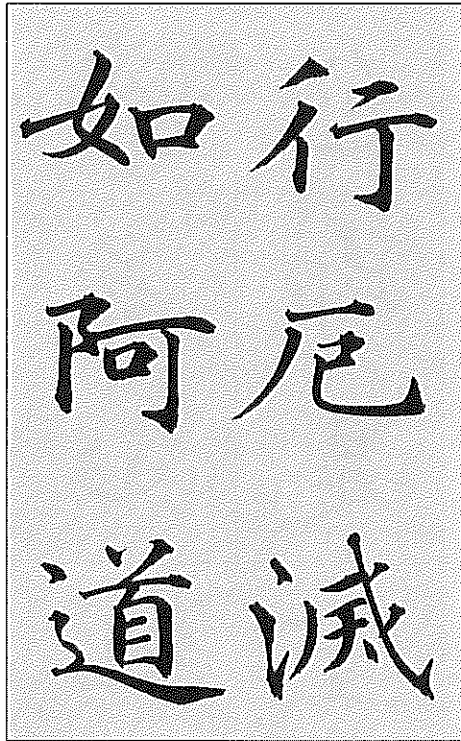 行厄滅
如阿道